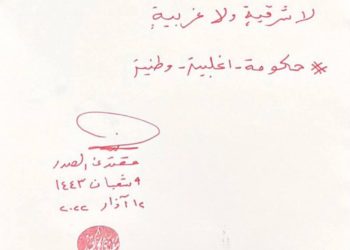 لا شرقية ولا غربية
* حكومة - اغلبية - وطنية
مقتدى الصدر
٩ شعبان ١٤٤٣
١٢ آذار ٢٠٢٢